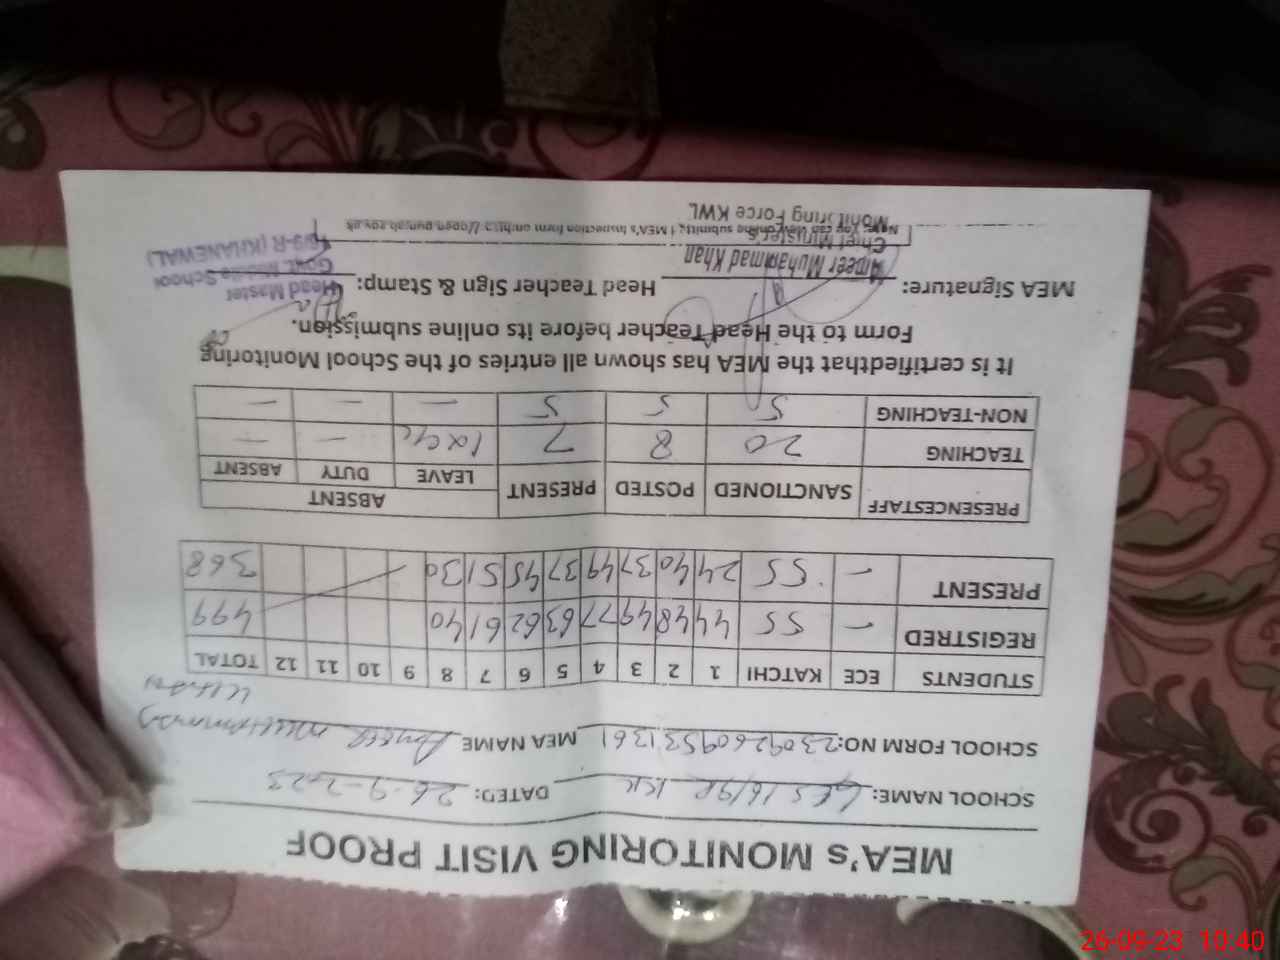 MEA's MONITORING VISIT PROOF
SCHOOL NAME: GES 16/9R KK DATED: 26-9-2023
SCHOOL FORM NO: MEA NAME Ameer Muhammad Khan
STUDENTS ECE KATCHI 1 2 3 4 5 6 7 8 9 10 11 12 TOTAL
REGISTRED — 55 44 48 49 77 63 62 61 40 499
PRESENT — 55 24 40 37 49 37 45 51 30 368
PRESENCESTAFF SANCTIONED POSTED PRESENT ABSENT
LEAVE DUTY ABSENT
TEACHING 20 8 7 — —
NON-TEACHING 5 5 5 — — —
It is certifiedthat the MEA has shown all entries of the School Monitoring
Form to the Head Teacher before its online submission.
MEA Signature: Head Teacher Sign & Stamp:
Ameer Muhammad Khan
Chief Minister's
Monitoring Force KWL
Head Master
Govt. Middle School
16/9-R (KHANEWAL)
Note: You can view online submitted MEA's Inspection form on
26-09-23 10:40